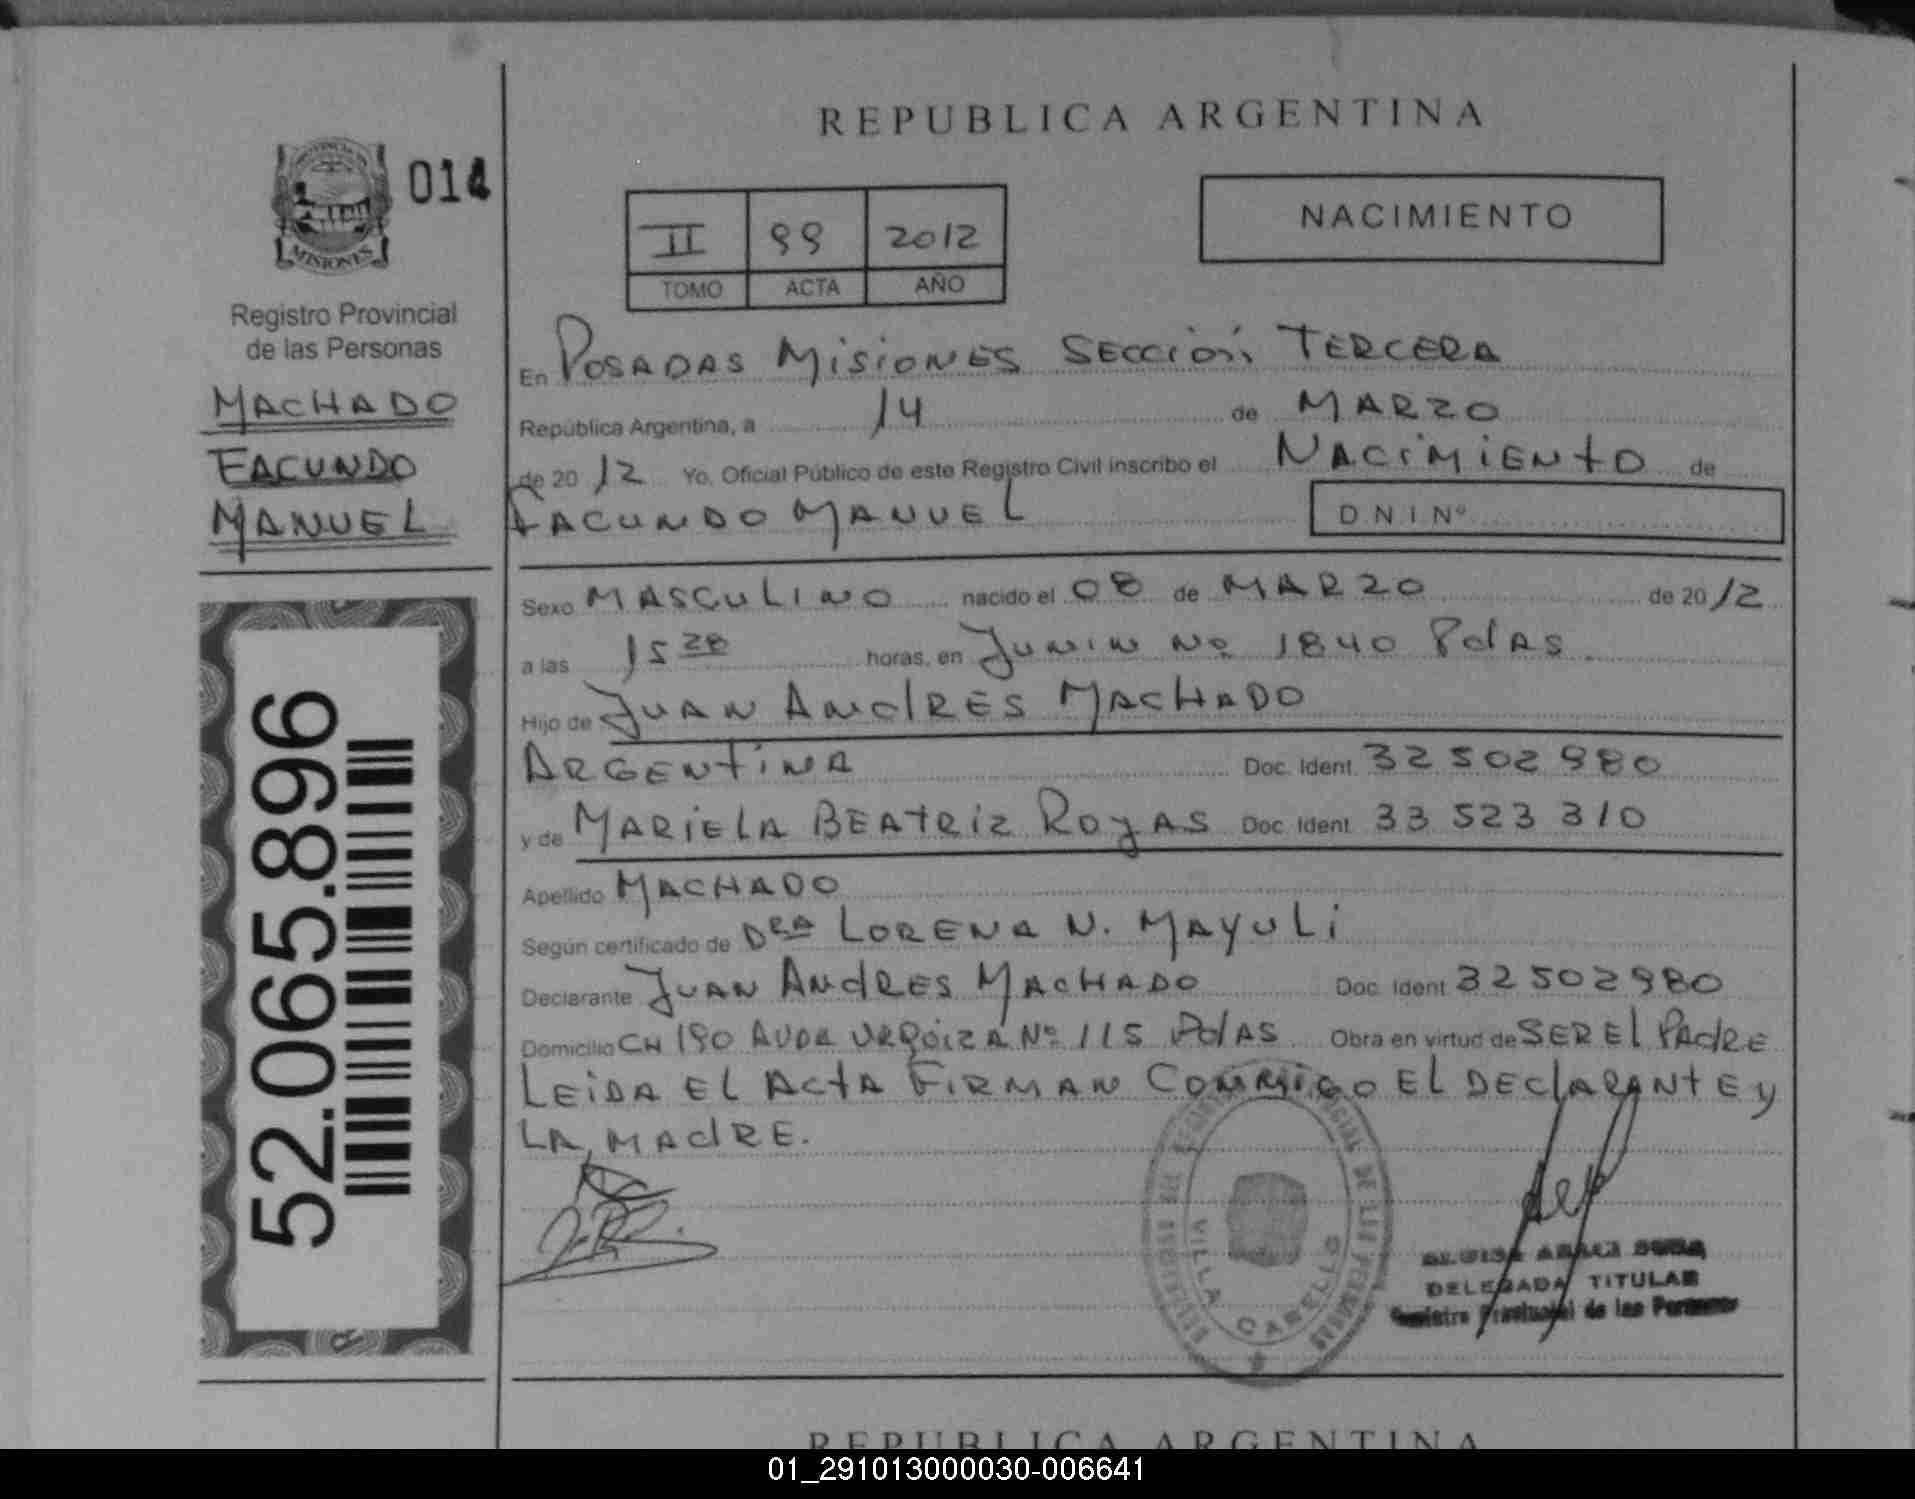 REPUBLICA ARGENTINA
014
MISIONES
Registro Provincial
de las Personas
MACHADO
FACUNDO
MANUEL
52.065.896
II 99 2012
TOMO ACTA AÑO
NACIMIENTO
En POSADAS MISIONES SECCIÓN TERCERA
República Argentina, a 14 de MARZO
de 2012 Yo, Oficial Público de este Registro Civil inscribo el NACIMIENTO de
FACUNDO MANUEL D.N.I Nº
Sexo MASCULINO nacido el 08 de MARZO de 2012
a las 15 28 horas, en JUNIN Nº 1840 PdAS
Hijo de JUAN ANdRES MACHADO
ARGENTINA Doc. Ident. 32 502 980
y de MARIELA BEATRIZ ROJAS Doc. Ident. 33 523 310
Apellido MACHADO
Según certificado de DRA LORENA N. MAYULI
Declarante JUAN ANdRES MACHADO Doc. Ident. 32 502 980
Domicilio CH 190 AVDA URQUIZA Nº 115 PdAS Obra en virtud de SER EL PAdRE
LEIDA EL ACTA FIRMAN CONMIGO EL DECLARANTE y
LA MAdRE.
VILLA CABELLO
DELEGADA TITULAR
Registro Provincial de las Personas
REPUBLICA ARGENTINA
01_291013000030-006641